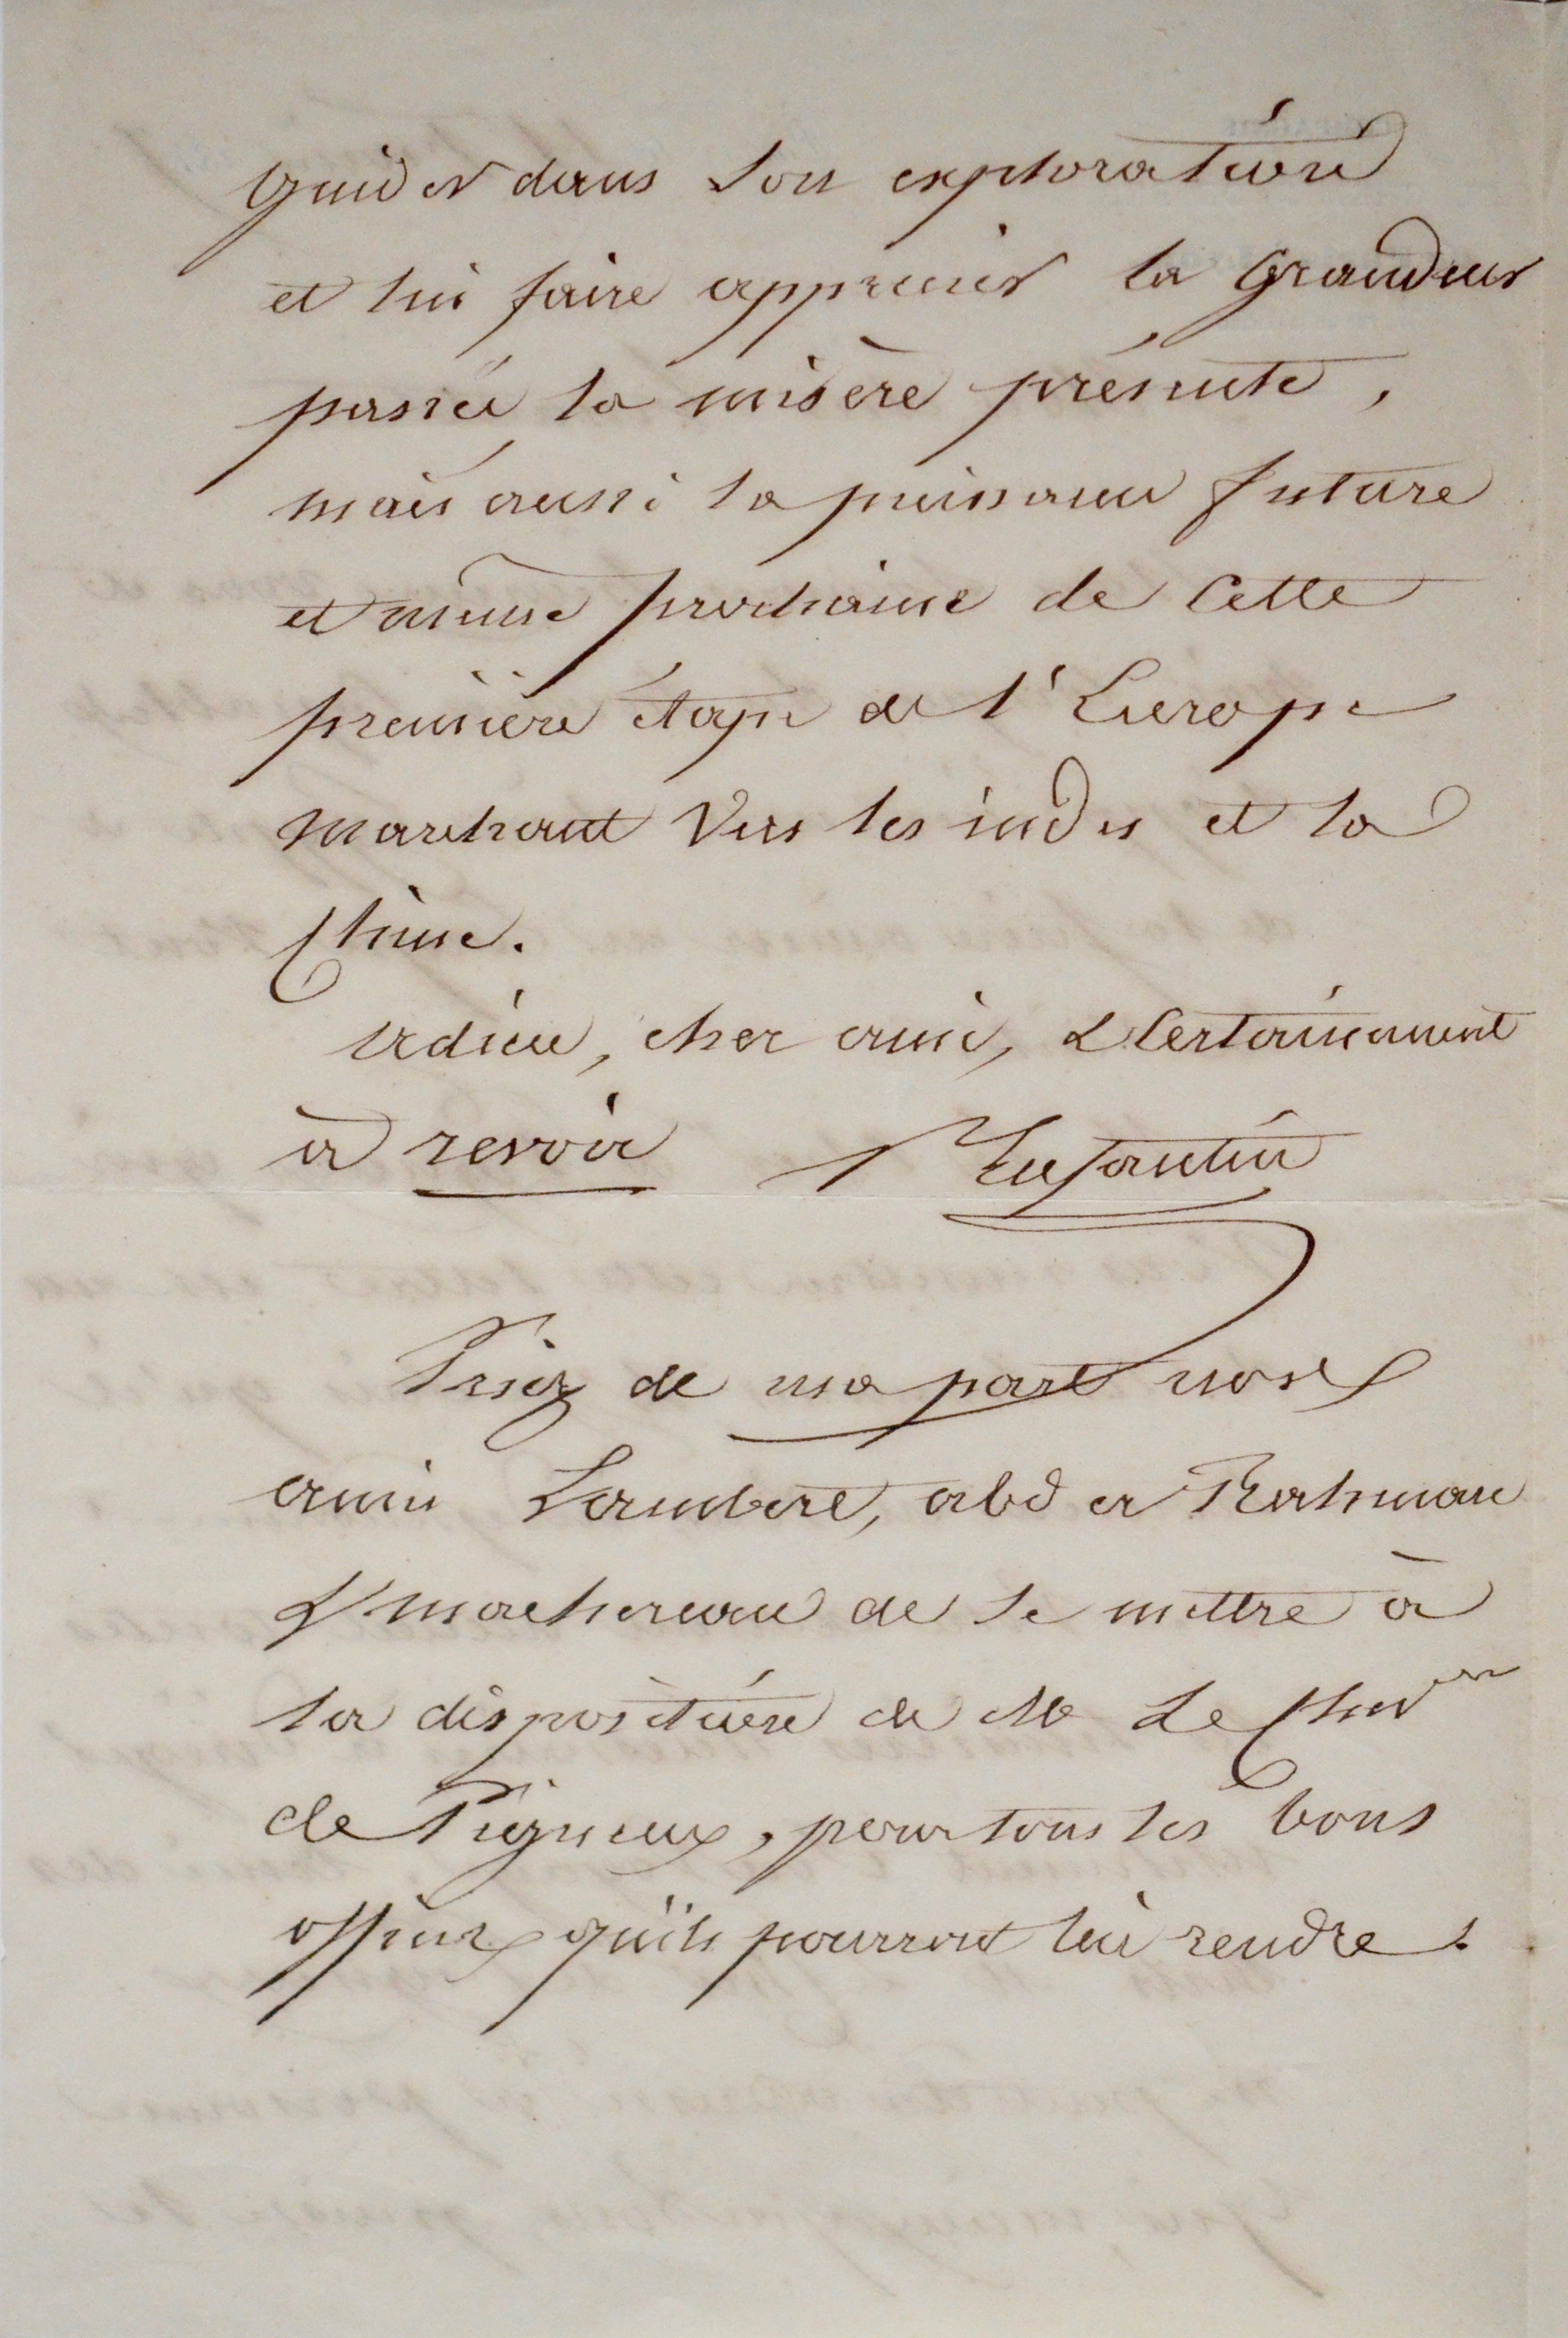 guider dans son exploration
et lui faire apprécier la grandeur
passée la misère présente,
mais aussi la puissance future
et même prochaine de cette
première étape de l'Europe
marchant vers les indes et la
Chine.
Adieu, cher ami, & certainement
à revoir P Enfantin
Priez de ma part nos
amis Lambert, abd er Rahman
& Machereau de se mettre à
la disposition de M Le Chev er
de Pigneux, pour tous les bons
offices qu'ils pourront lui rendre.